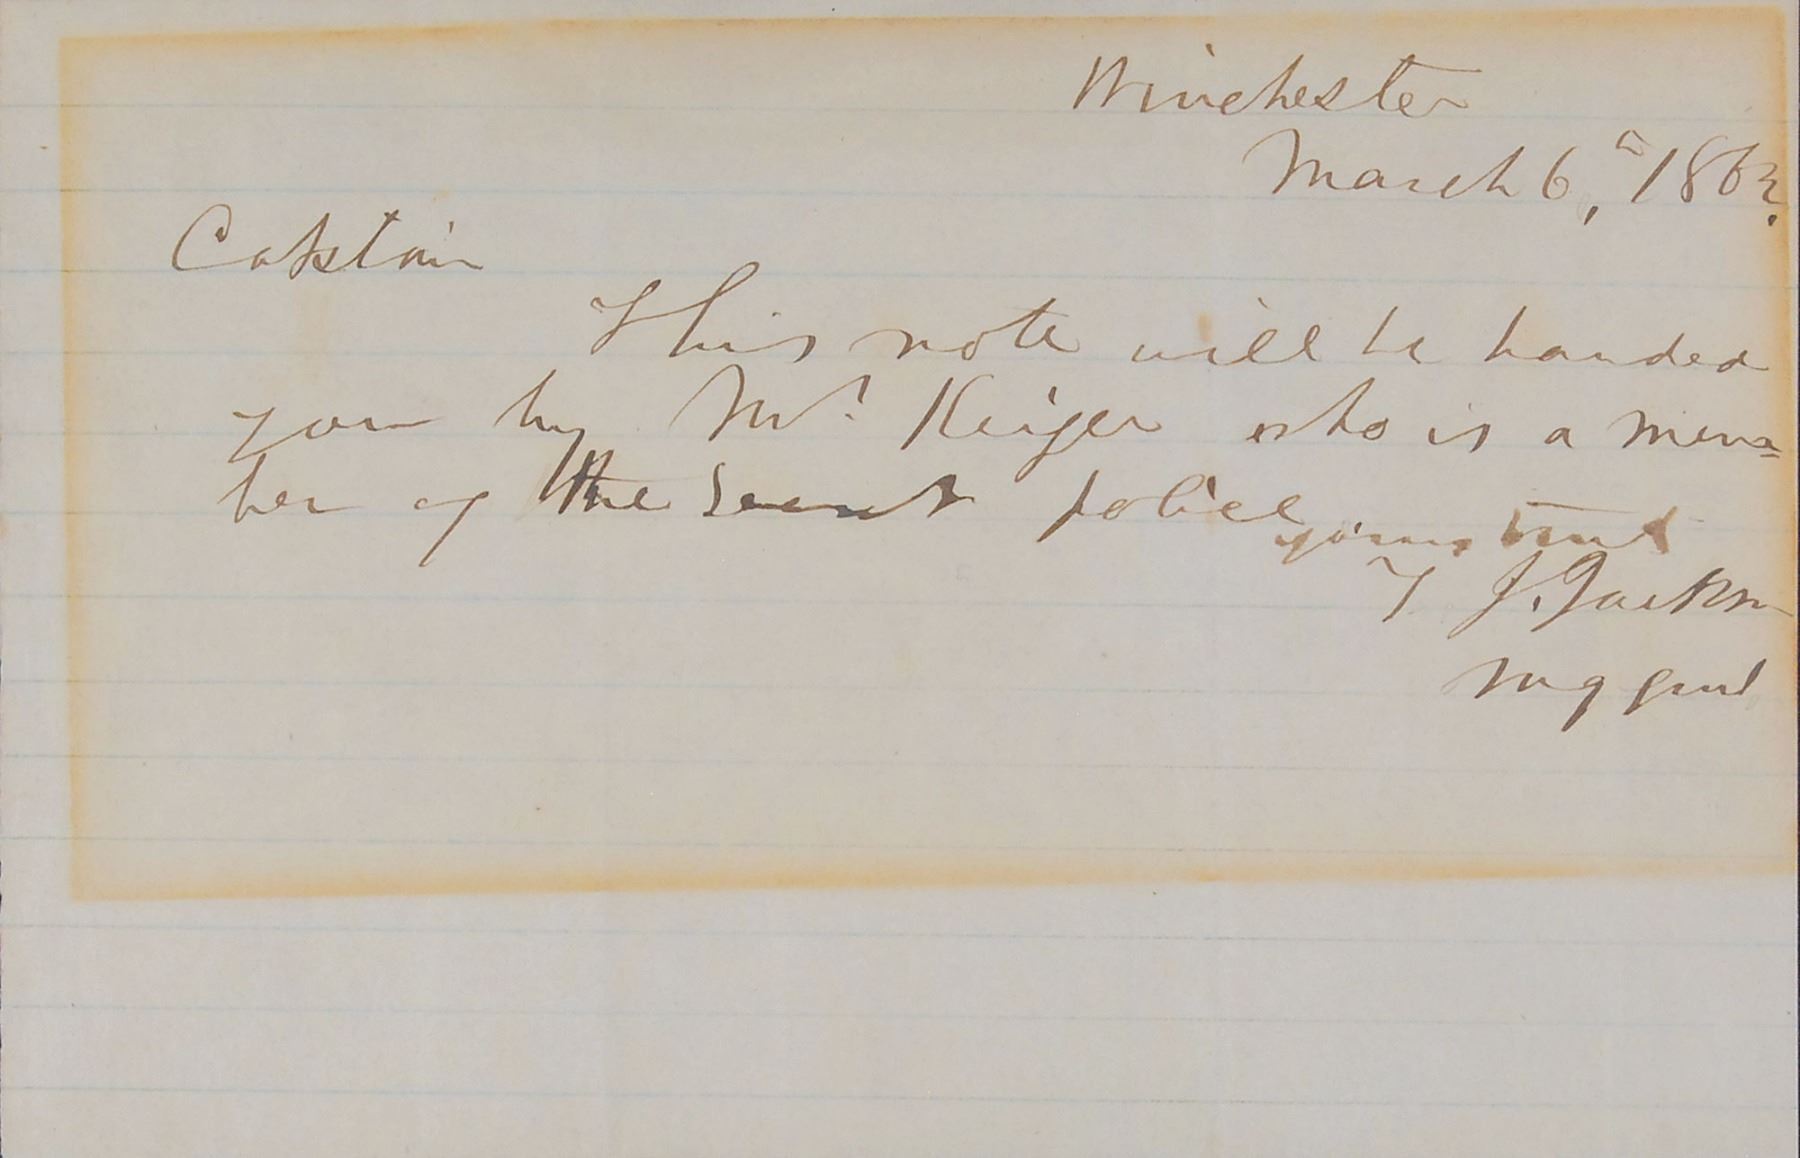 Winchester
March 6th, 1862.
Captain
This note will be handed
you by Mr. Keiger who is a mem=
ber of the Secret police
yours truly
T. J. Jackson
Maj Genl